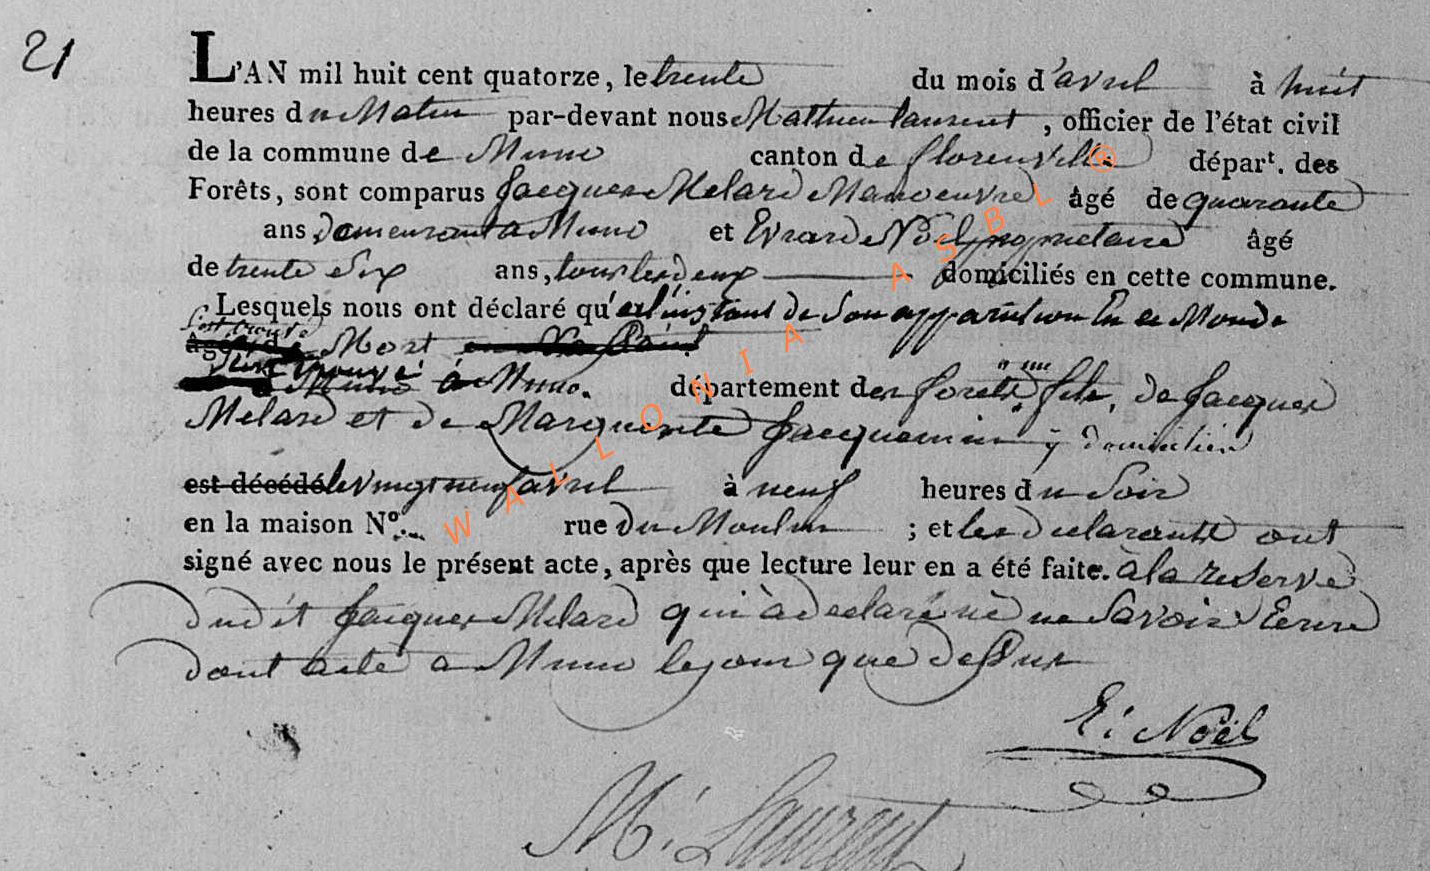 21
L'AN mil huit cent quatorze, le trente du mois d'avril à huit
heures du Matin par-devant nous Mathieu laurent, officier de l'état civil
de la commune de Muno canton de florenville départ. des
Forêts, sont comparus Jacques Melard Manoeuvre âgé de quarante
ans Demeurant a Muno et Evrard Noël proprietaire âgé
de trente Six ans, tous les deux domiciliés en cette commune.
Lesquels nous ont déclaré qu'a l'instant de Son apparition En ce Monde
s'est trouvé
âgé Mort
Muno à Muno. département des forêts, fils, de Jacques
Melard et de Marguerite Jacquemin y domiciliés
est décédé le vingt neuf avril à neuf heures du Soir
en la maison N° rue Du Moulin ; et les Declarants ont
signé avec nous le présent acte, après que lecture leur en a été faite. à la reserve
Dudit Jacques Melard qui à declaré ne Savoir Ecrire
dont acte a Muno le jour que dessus
E: Noël
M: Laurent
WALLONIA ASBL ®